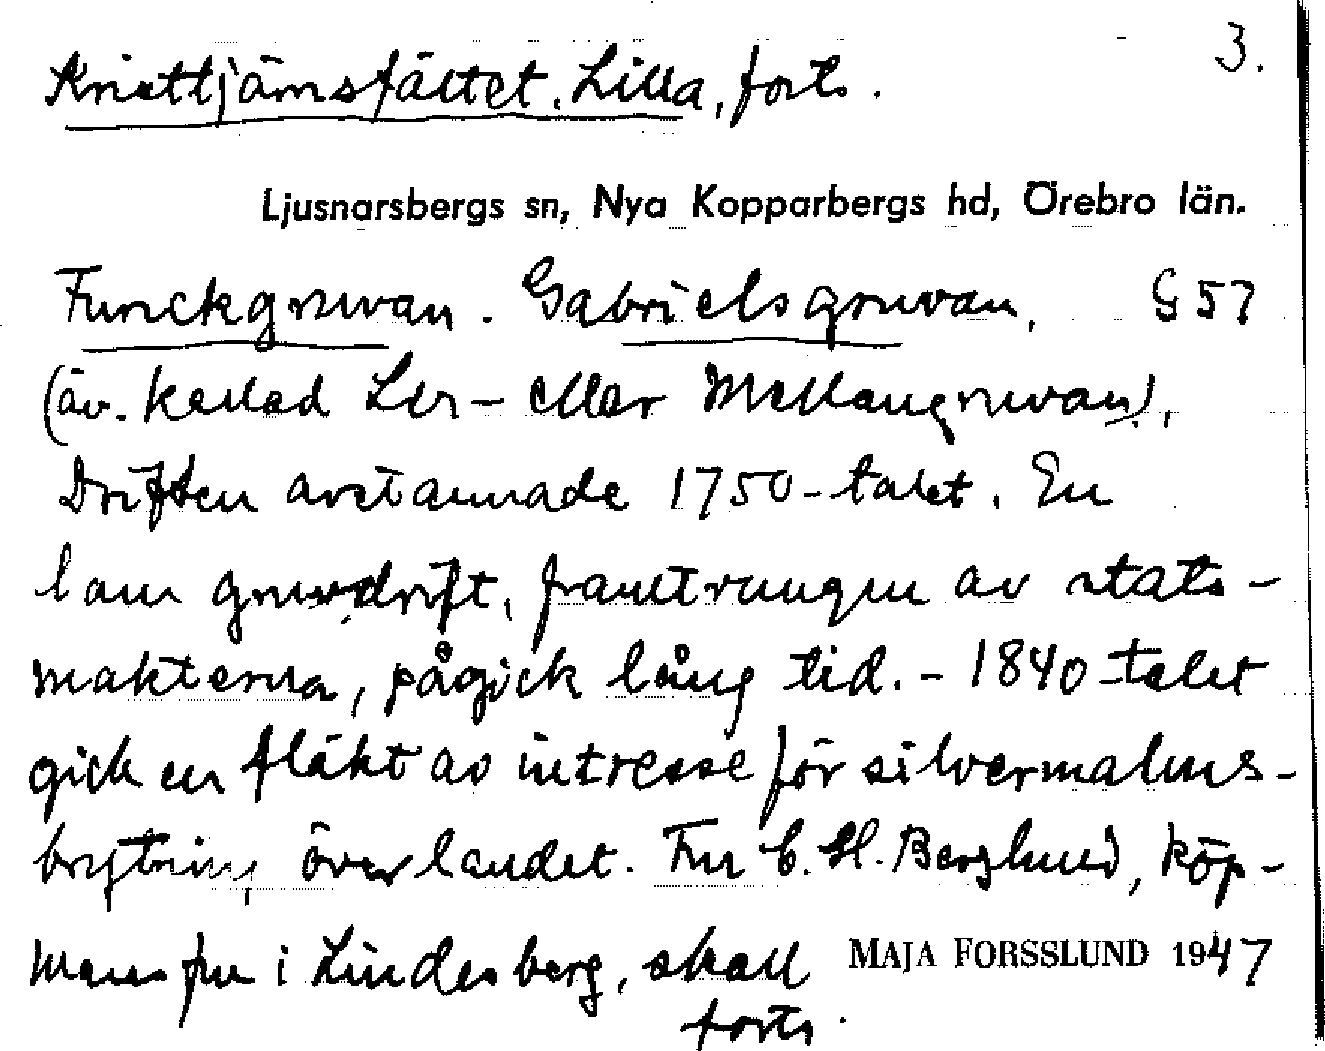 3.
Knisttjärnsfältet, Lilla, forts.
Ljusnarsbergs sn, Nya Kopparbergs hd, Örebro län.
Funckgruvan. Gabrielsgruvan, G 57
(äv. kallad Ler- eller Mellangruvan),
Driften avstannade 1750-talet. En
lam gruvdrift, framtvungen av stats-
makterna, pågick lång tid. - 1840-talet
gick en fläkt av intresse för silvermalms-
brytning över landet. Fru C. H. Berglund, köp-
mansfru i Lindesberg, skall MAJA FORSSLUND 1947
forts.